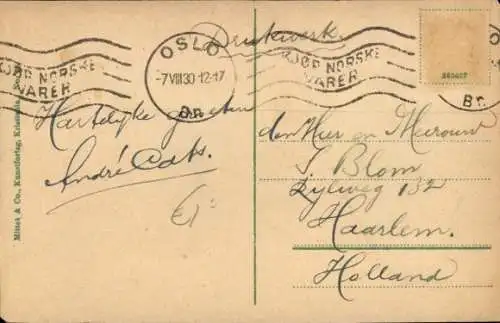 Drukwerk.
OSLO
-7 VIII 30·12-17
Br.
KJØP NORSKE
VARER
KJØP NORSKE
VARER
Br.
Hartelijke groeten
André Cats.
den Heer en Mevrouw
J. Blom
132
Haarlem.
Holland
Mittet & Co., Kunstforlag, Kristiania. No.